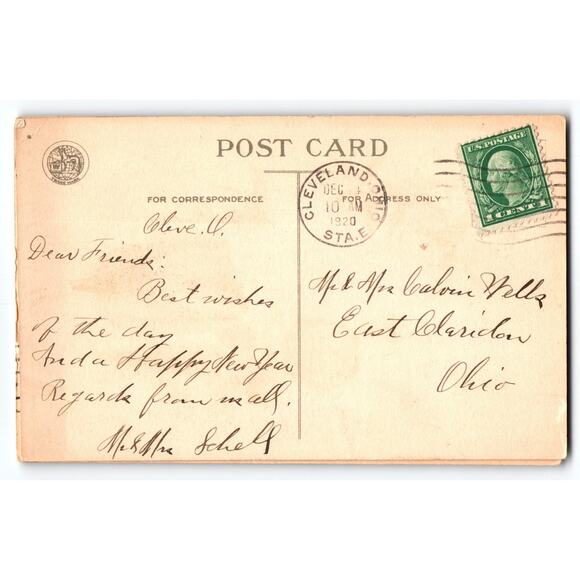 POST CARD
FOR CORRESPONDENCE
FOR ADDRESS ONLY
CLEVELAND, OHIO
DEC
10 AM
1920
STA. E
U.S. POSTAGE
1 CENT 1
Cleve. O.
Dear Friends:
Best wishes
of the day
And a Happy New Year
Regards from us all.
Mr & Mrs Schell
Mr & Mrs Calvin Wells
East Claridon
Ohio